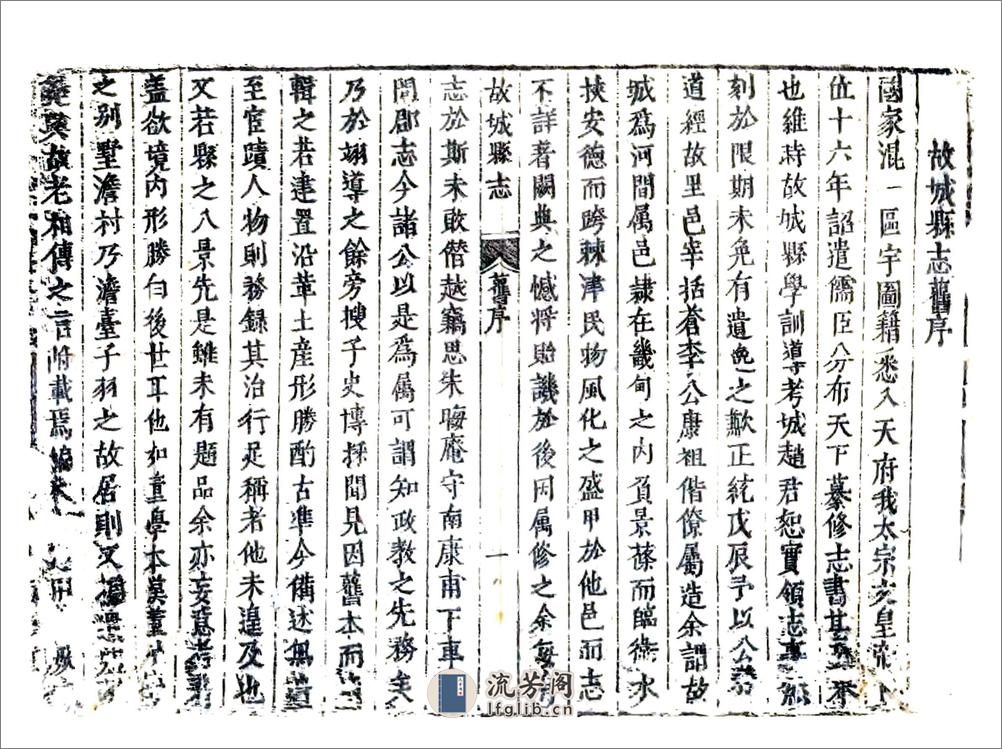 故城縣志舊序
國家混一區宇圖籍悉入天府我太宗文皇帝
位十六年詔遣儒臣分布天下纂修志書甚
也維時故城縣學訓導考城趙君恕實領志事
刻於限期未免有遺逸之歎正統戊辰予以公
道經故里邑宰括蒼李公康祖偕僚屬造余謂故
城爲河間屬邑隷在畿甸之内負景蓧而臨衛水
挾安德而跨棘津民物風化之盛甲於他邑而志
不詳著闕典之憾將貽譏於後因属修之余每
故城縣志 舊序 一
志於斯未敢僭越竊思朱晦庵守南康甫下車
問郡志今諸公以是爲屬可謂知政教之先務矣
乃於翊導之餘旁搜子史博採聞見因舊本而
輯之若建置沿革土産形勝酌古準今備述無遺
至宦蹟人物則務録其治行足稱者他未遑及也
又若縣之八景先是雖未有題品余亦妄意考
盖欲境内形勝白後世耳他如董學本漢董
之别墅澹村乃澹臺子羽之故居則又
故老相傳之言附載焉編
流芳阁
lfglib.cn